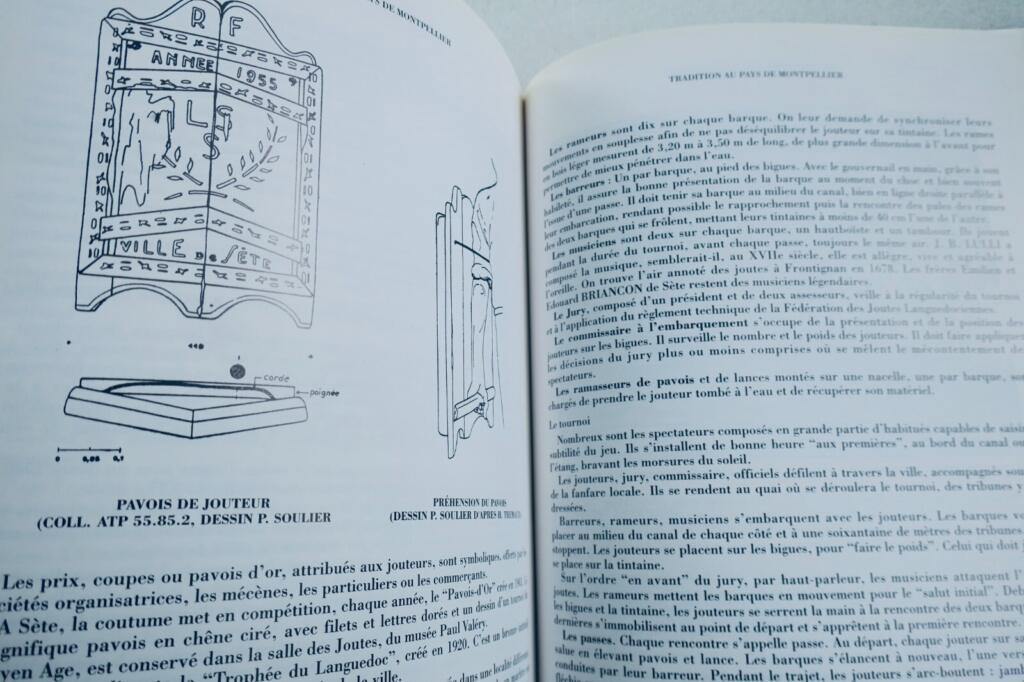 YS DE MONTPELLIER
R F
ANNEE 1955
L S
S
VILLE DE SÈTE
corde
poignée
0 0,05 0,1
PAVOIS DE JOUTEUR
(COLL. ATP 55.85.2, DESSIN P. SOULIER
PRÉHENSION DU PAVOIS
(DESSIN P. SOULIER D'APRES H.
Les prix, coupes ou pavois d'or, attribués aux jouteurs, sont symboliques, offerts par les
ciétés organisatrices, les mécènes, les particuliers ou les commerçants.
A Sète, la coutume met en compétition, chaque année, le "Pavois-d'Or" créé en
gnifique pavois en chêne ciré, avec filets et lettres dorés et un dessin d'un tournoi
yen Age, est conservé dans la salle des Joutes, du musée Paul Valéry.
la "Trophée du Languedoc", créé en 1920. C'est un bronze
de la ville.
dans une localité
TRADITION AU PAYS DE MONTPELLIER
Les rameurs sont dix sur chaque barque. On leur demande de synchroniser leurs
mouvements en souplesse afin de ne pas déséquilibrer le jouteur sur sa tintaine. Les rames
en bois léger mesurent de 3,20 m à 3,50 m de long, de plus grande dimension à l'avant pour
permettre de mieux pénétrer dans l'eau.
Les barreurs : Un par barque, au pied des bigues. Avec le gouvernail en main, grâce à son
habileté, il assure la bonne présentation de la barque au moment du choc et bien souvent
l'issue d'une passe. Il doit tenir sa barque au milieu du canal, bien en ligne droite parallèle à
leur embarcation, rendant possible le rapprochement puis la rencontre des pales des rames
des deux barques qui se frôlent, mettant leurs tintaines à moins de 40 cm l'une de l'autre.
Les musiciens sont deux sur chaque barque, un hautboïste et un tambour. Ils jouent
pendant la durée du tournoi, avant chaque passe, toujours le même air. J. B. LULLI a
composé la musique, semblerait-il, au XVIIe siècle, elle est allègre, vive et agréable à
l'oreille. On trouve l'air annoté des joutes à Frontignan en 1678. Les frères Emilien et
Edouard BRIANCON de Sète restent des musiciens légendaires.
Le Jury, composé d'un président et de deux assesseurs, veille à la régularité du tournoi
et à l'application du règlement technique de la Fédération des Joutes Languedociennes.
Le commissaire à l'embarquement s'occupe de la présentation et de la position des
jouteurs sur les bigues. Il surveille le nombre et le poids des jouteurs. Il doit faire appliquer
les décisions du jury plus ou moins comprises où se mêlent le mécontentement de
spectateurs.
Les ramasseurs de pavois et de lances montés sur une nacelle, une par barque, son
chargés de prendre le jouteur tombé à l'eau et de récupérer son matériel.
Le tournoi
Nombreux sont les spectateurs composés en grande partie d'habitués capables de saisir
subtilité du jeu. Ils s'installent de bonne heure "aux premières", au bord du canal ou
l'étang, bravant les morsures du soleil.
Les jouteurs, jury, commissaire, officiels défilent à travers la ville, accompagnés sou
de la fanfare locale. Ils se rendent au quai où se déroulera le tournoi, des tribunes y
dressées.
Barreurs, rameurs, musiciens s'embarquent avec les jouteurs. Les barques vo
placer au milieu du canal de chaque côté et à une soixantaine de mètres des tribunes
stoppent. Les jouteurs se placent sur les bigues, pour "faire le poids". Celui qui doit j
se place sur la tintaine.
Sur l'ordre "en avant" du jury, par haut-parleur, les musiciens attaquent l'
joutes. Les rameurs mettent les barques en mouvement pour le "salut initial". Deb
les bigues et la tintaine, les jouteurs se serrent la main à la rencontre des deux barq
dernières s'immobilisent au point de départ et s'apprêtent à la première rencontre.
Les passes. Chaque rencontre s'appelle passe. Au départ, chaque jouteur sur sa
salue en élevant pavois et lance. Les barques s'élancent à nouveau, l'une ver
conduites par leur barreur. Pendant le trajet, les jouteurs s'arc-boutent : jamb